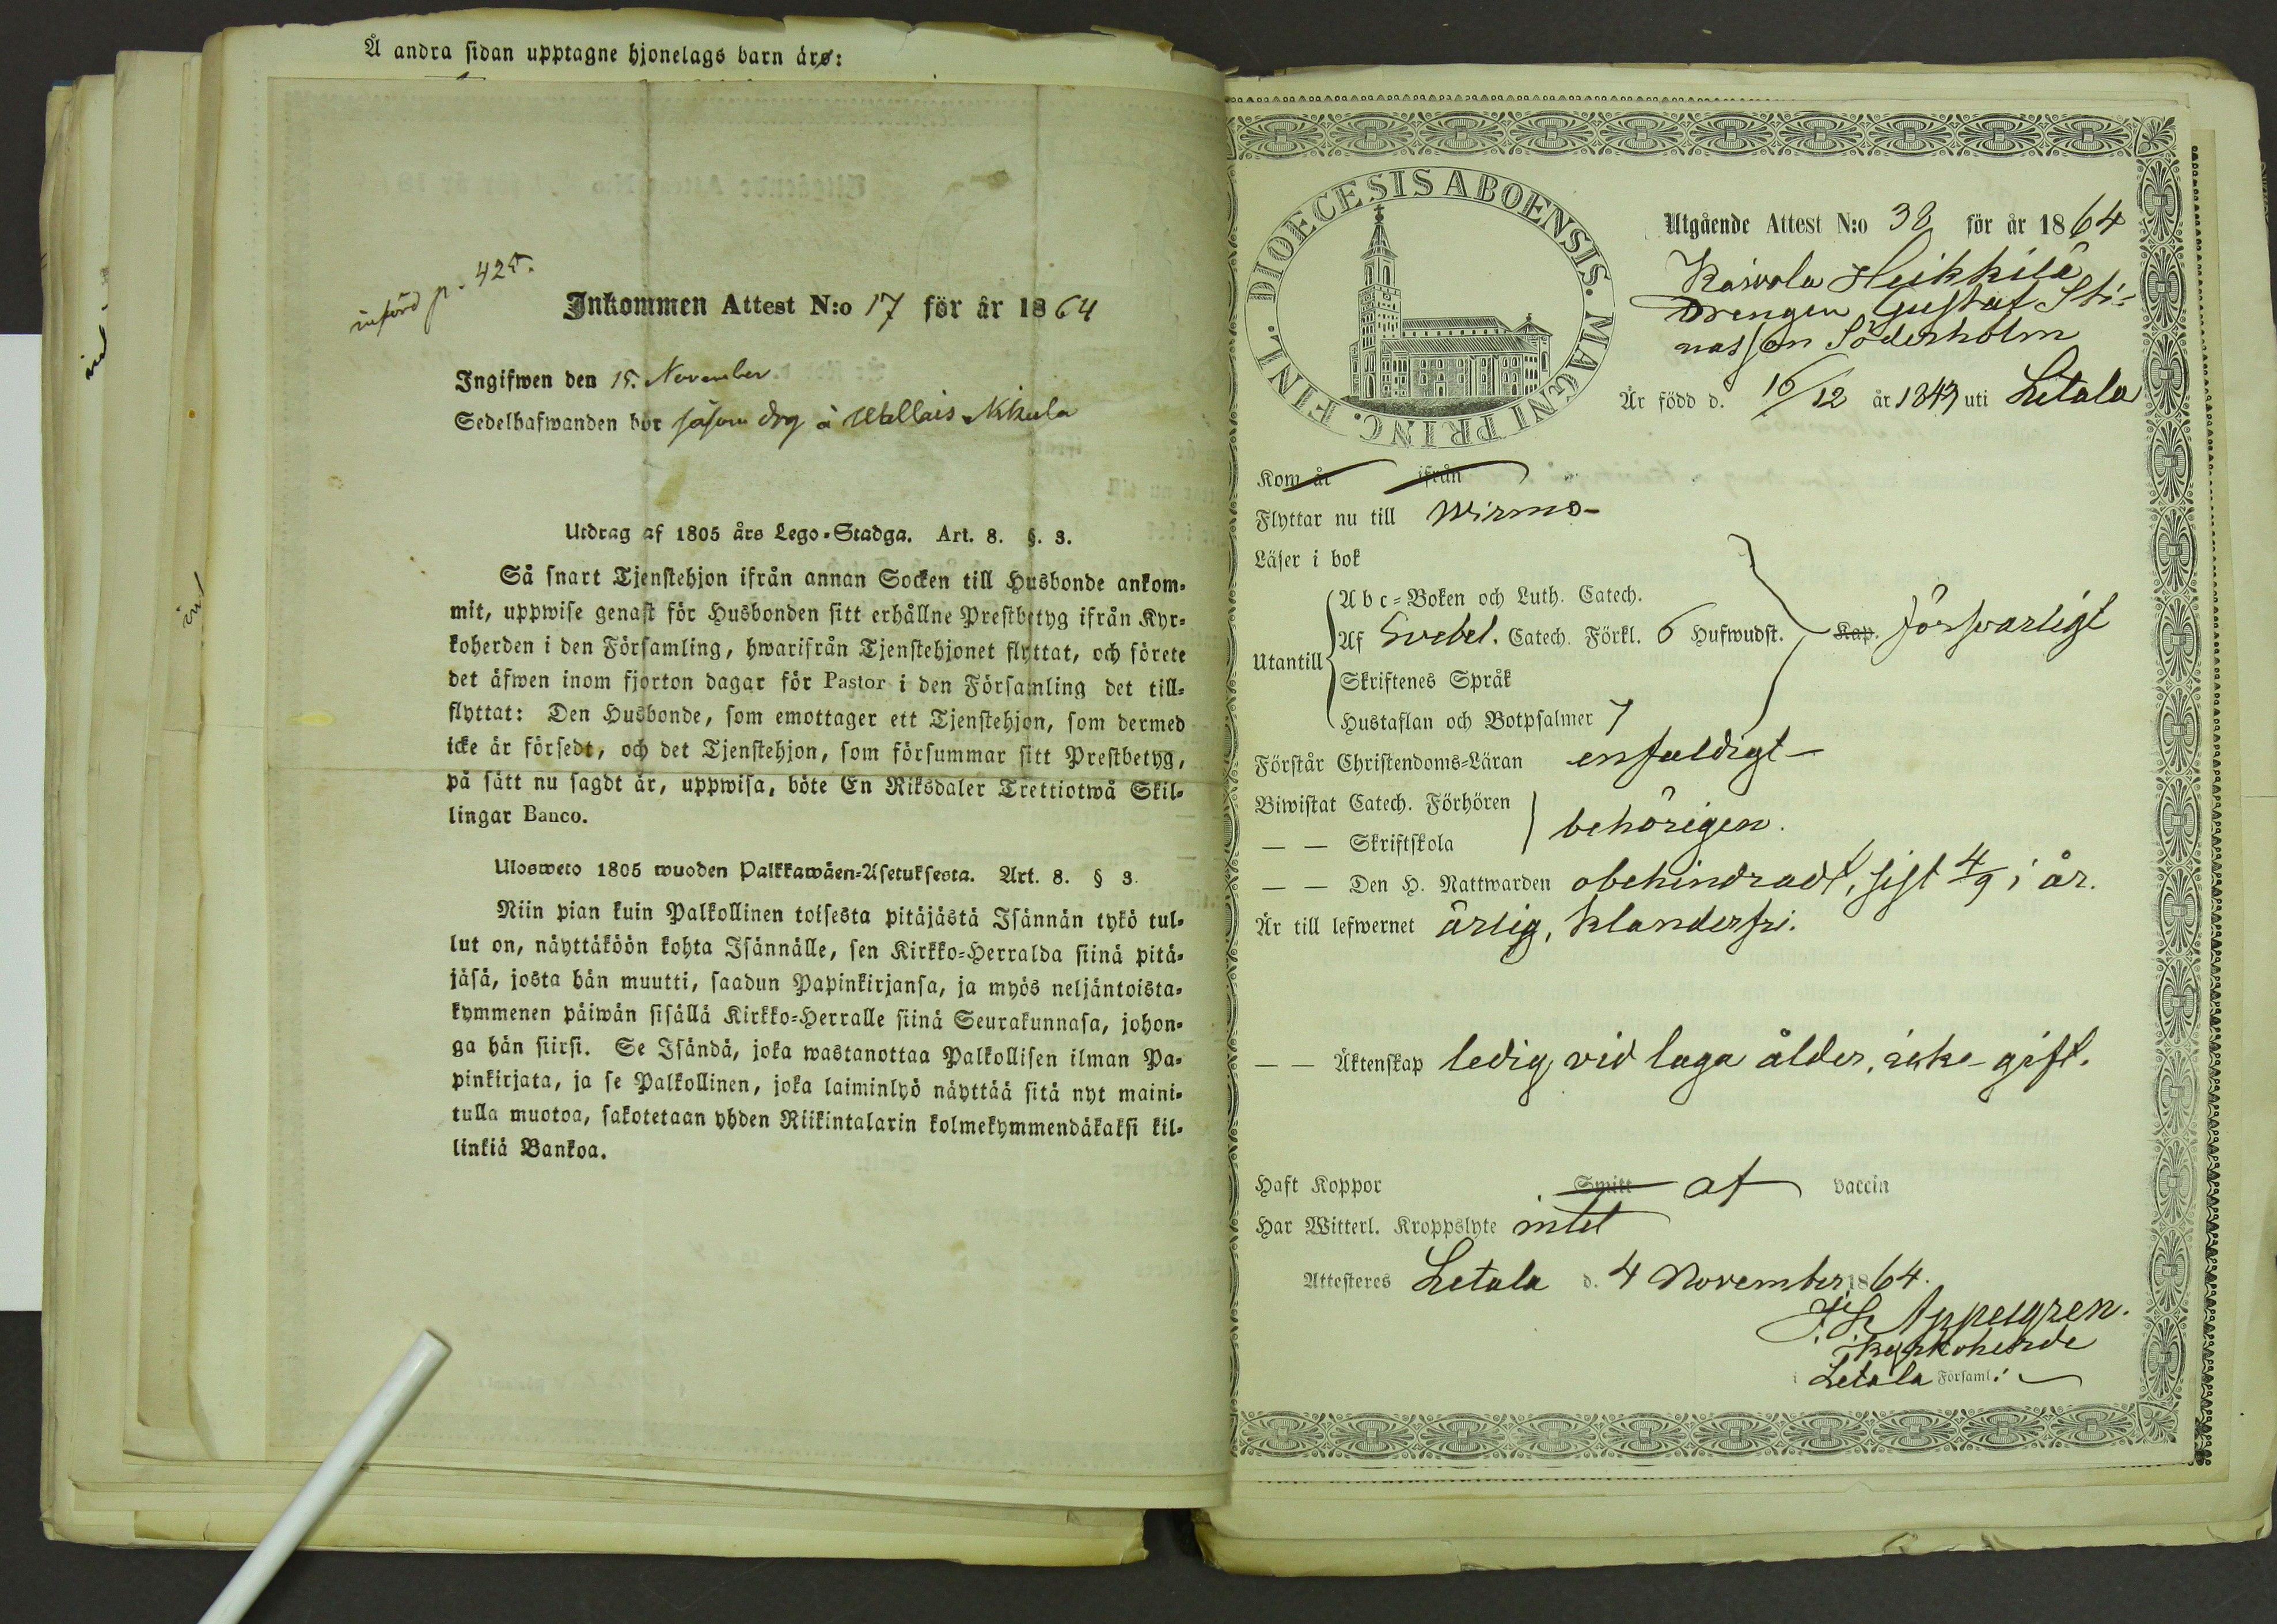 Å andra sidan upptagne hjonelags barn äro:
införd p. 425.
Inkommen Attest N:o 17 för år 1864
Ingifwen den 15. November
Sedelhafwanden bor såsom drg å Wallais
Utdrag af 1805 års Lego-Stadga. Art. 8. §. 3.
Så snart Tjenstehjon ifrån annan Socken till Husbonde ankom-
mit, uppwise genast för Husbonden sitt erhållne Prestbetyg ifrån Kyr-
koherden i den Församling, hwarifrån Tjenstehjonet flyttat, och förete
det äfwen inom fjorton dagar för Pastor i den Församling det till-
flyttat: Den Husbonde, som emottager ett Tjenstehjon, som dermed
icke är försedt, och det Tjenstehjon, som försummar sitt Prestbetyg,
på sätt nu sagdt är, uppwisa, böte En Riksdaler Trettiotwå Skil-
lingar Banco.
Ulosweto 1805 wuoden Palkkawäen-Asetuksesta. Art. 8. § 3.
Niin pian kuin Palkollinen toisesta pitäjästä Isännän tykö tul-
lut on, näyttäköön kohta Isännälle, sen Kirkko-Herralda siinä pitä-
jäsä, josta hän muutti, saadun Papinkirjansa, ja myös neljäntoista-
kymmenen päiwän sisällä Kirkko-Herralle siinä Seurakunnasa, johon-
ga hän siirsi. Se Isändä, joka wastanottaa Palkollisen ilman Pa-
pinkirjata, ja se Palkollinen, joka laiminlyö näyttää sitä nyt maini-
tulla muotoa, sakotetaan yhden Riikintalarin kolmekymmendäkaksi kil-
linkiä Bankoa.
DIOECESIS ABOENSIS. MAGNI PRINC. FINL.
Utgående Attest N:o 38 för år 1864
Kaivola Heikkilä
Drengen Gustaf Sti-
nasson Söderholm
Är född d. 16/12 år 1843 uti Letala
Kom år ifrån
Flyttar nu till Wirmo
Läser i bok
Utantill
Abc-Boken och Luth. Catech.
Af Svebel. Catech. Förkl. 6 Hufwudst. Kap. försvarligt
Skriftenes Språk
Hustaflan och Botpsalmer 7
Förstår Christendoms-Läran enfaldigt
Biwistat Catech. Förhören
— — Skriftskola behörigen.
— — Den H. Nattwarden obehindradt, sist 4/9 i år.
Är till lefwernet ärlig, klanderfri.
— — Äktenskap ledig, vid laga ålder, icke gift.
Haft Koppor Smitt af vaccin
Har Witterl. Kroppslyte intet
Attesteres Letala d. 4 November 1864.
F. H. Appelgren.
Kyrkoherde
i Letala Församl: